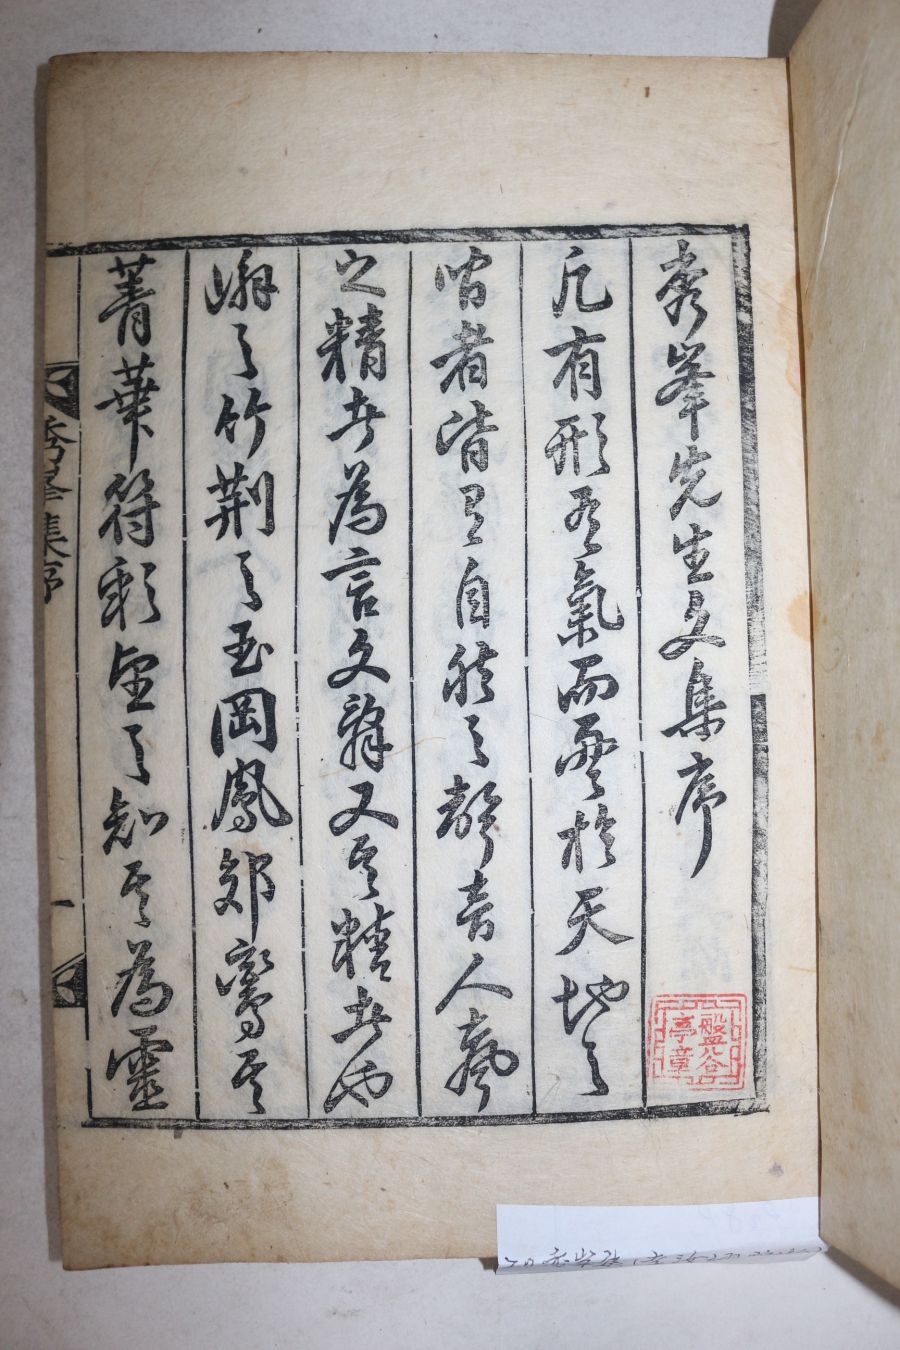 秀峯先生文集序
凡有形有氣而處於天地之
間者皆有自然之聲音人聲
之精者為言文辭又其精者也
嶰之竹荆之玉岡鳳郊鸞其
菁華符彩望之知其為靈
秀峯集序
一
盤谷亭章